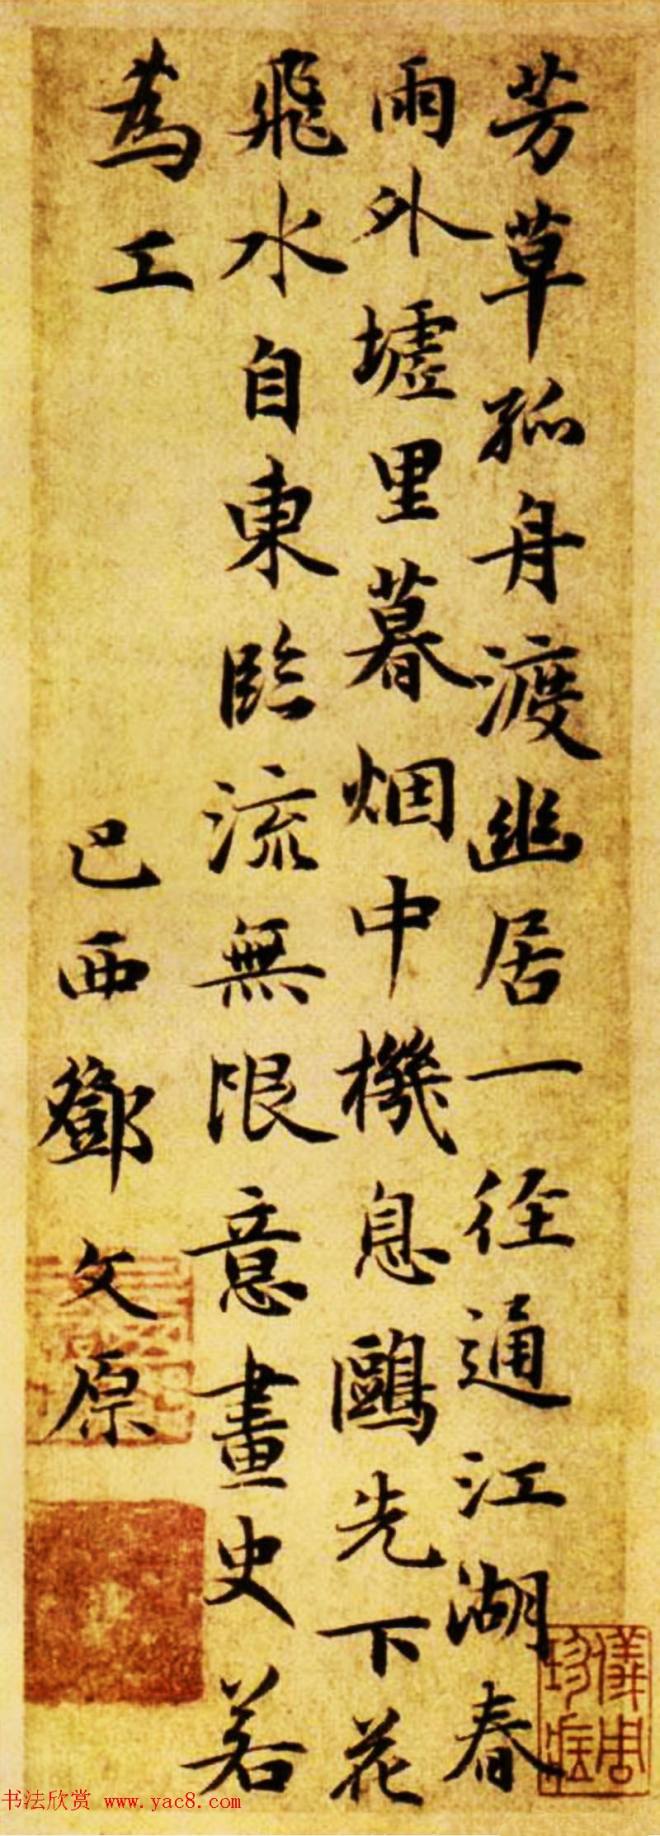 芳草孤舟渡幽居一径通江湖春
雨外墟里暮烟中機息鷗先下花
飛水自東臨流無限意畫史若
為工
巴西鄧文原
儀周珍藏
书法欣赏 www.yac8.com